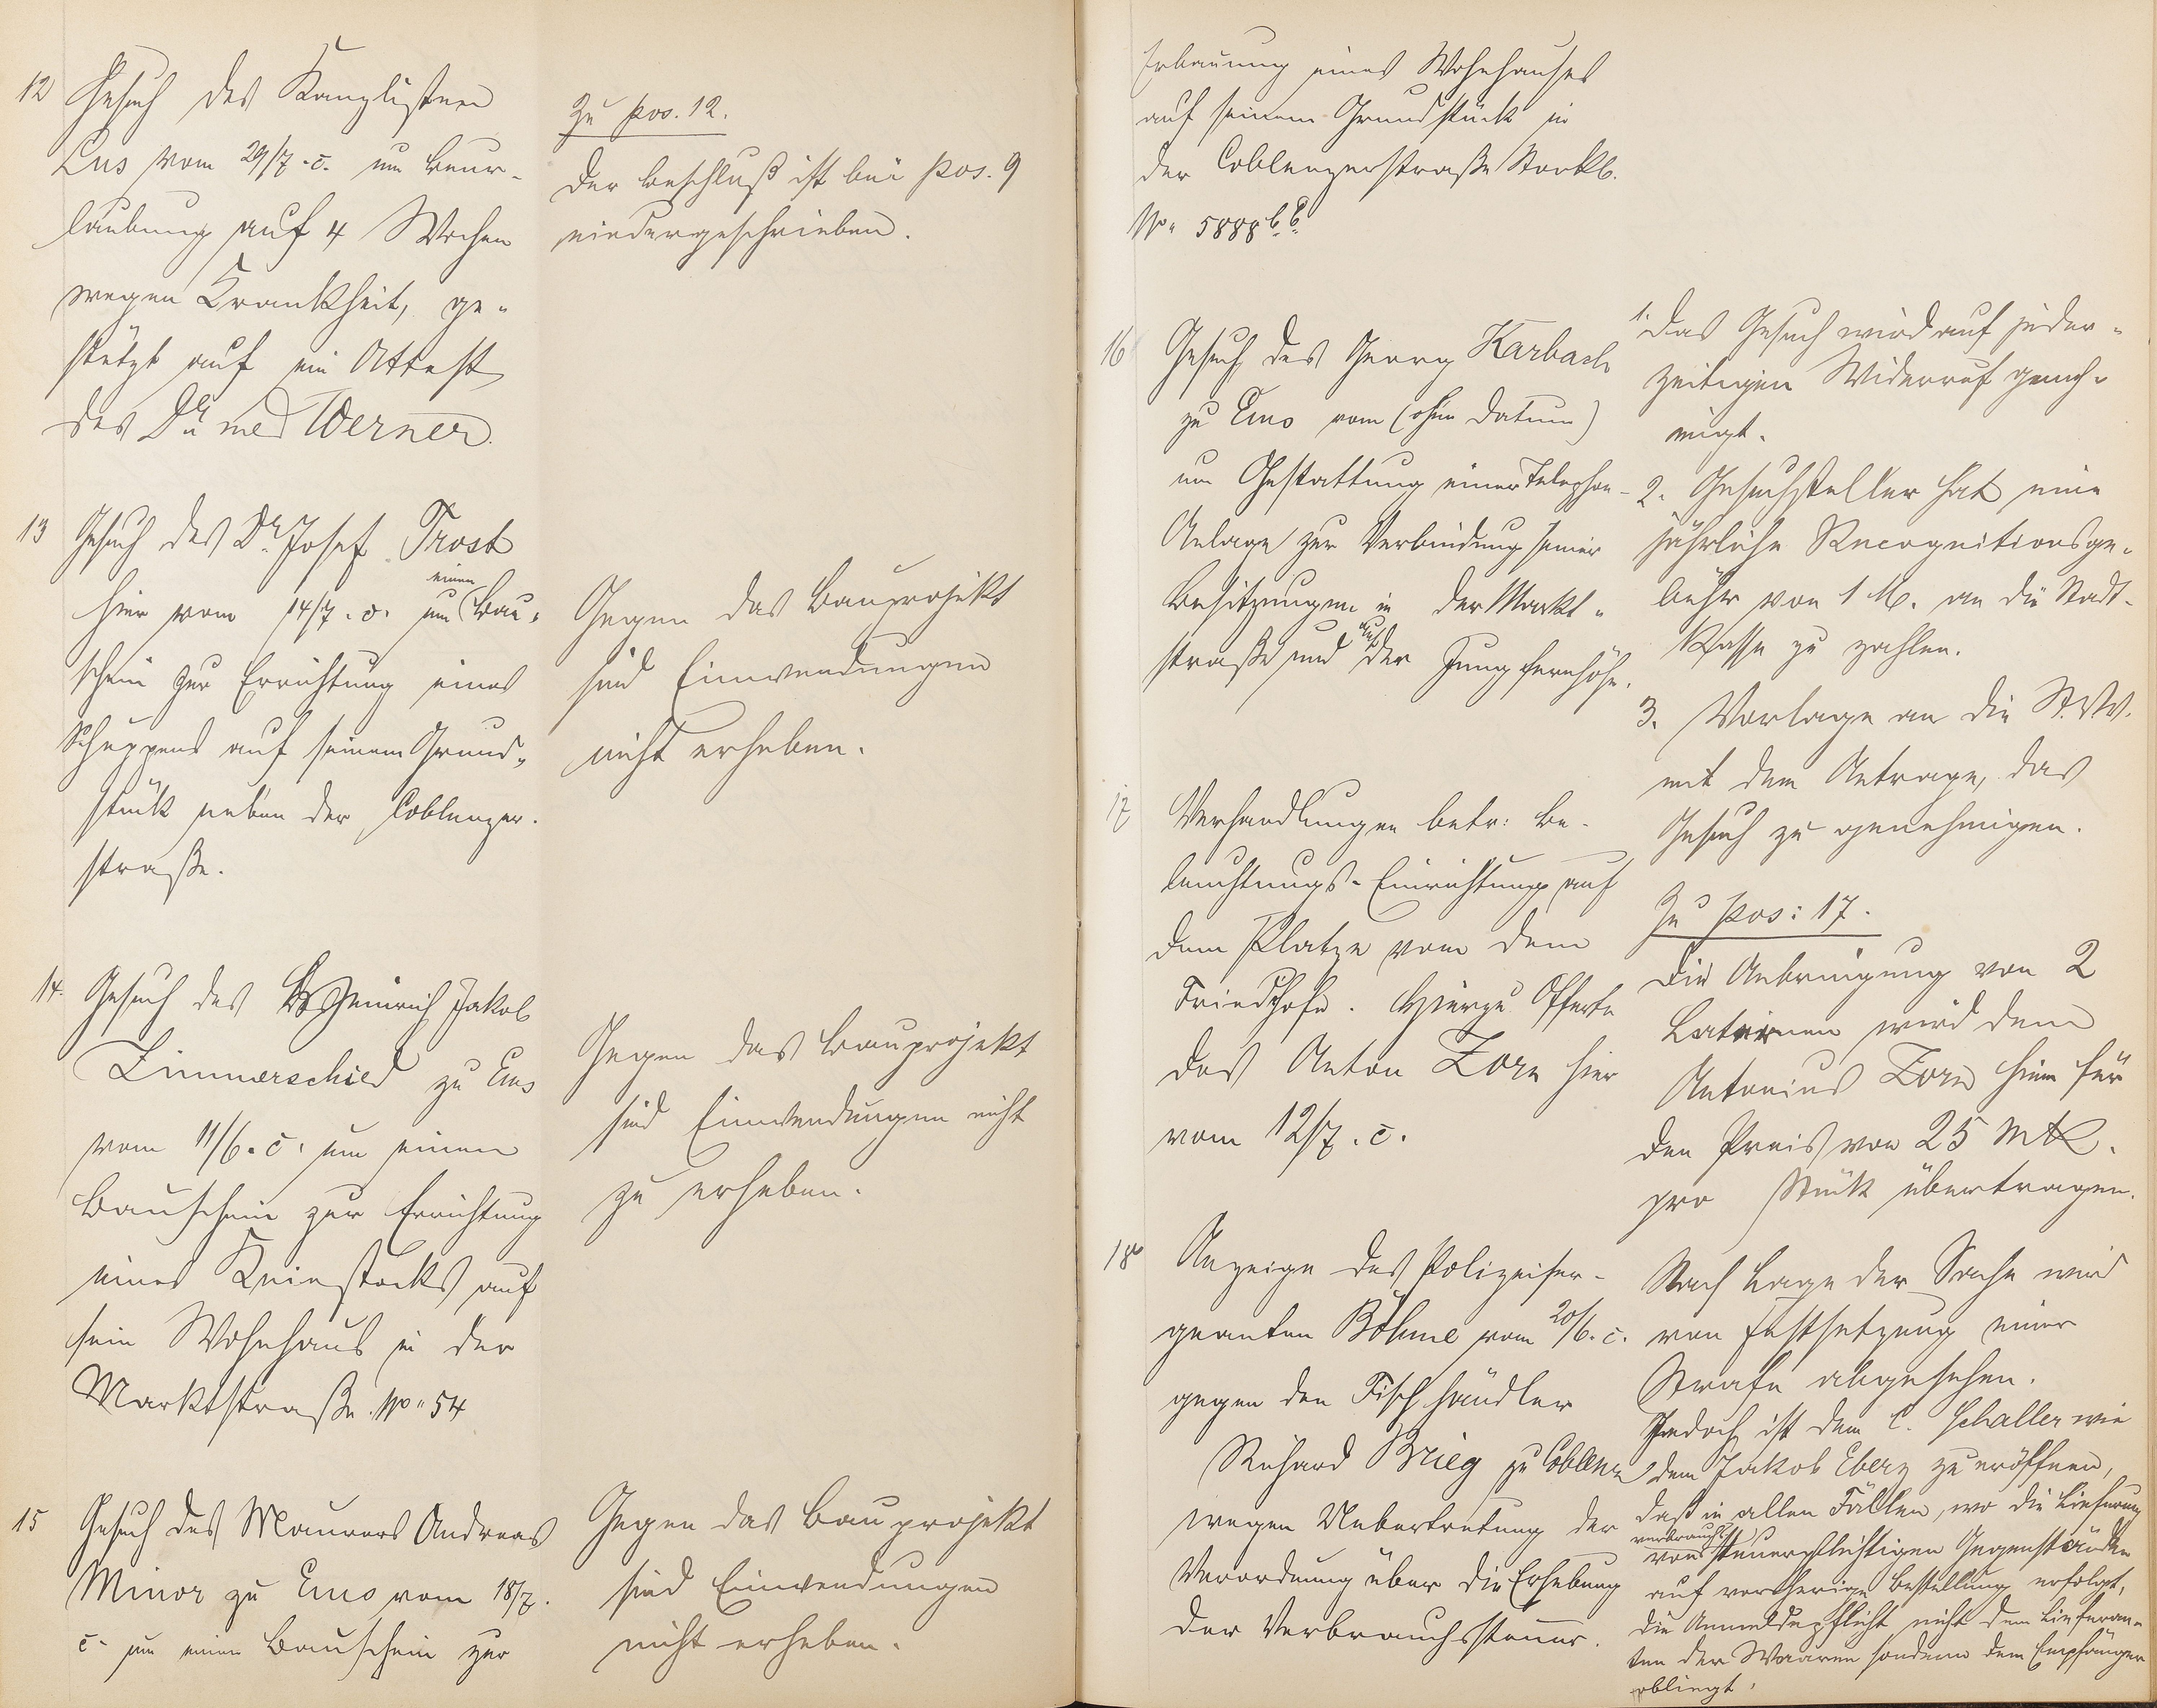 12 Gesuch des Kanzlisten
Lus vom 29/7. c. um Beur-
laubung auf 4 Wochen
wegen Krankheit, ge-
stützt auf ein Attest
des Dr. med Werner.
Zu pos. 12.
Der Beschluß ist bei pos. 9
niedergeschrieben.
13 Gesuch des Dr. Josef Trost
hier vom 14/7. c. um einen Bau-
schein zur Errichtung eines
Schuppens auf seinem Grund-
stück neben der Coblenzer-
straße.
Gegen das Bauprojekt
sind Einwendungen
nicht erheben.
14. Gesuch des Heinrich Jakob
Zimmerschied zu Ems
vom 11/6. c. um einen
Bauschein zur Errichtung
eines Kniestocks auf
sein Wohnhaus in der
Marktstraße No 54
Gegen das Bauprojekt
sind Einwendungen nicht
zu erheben.
15 Gesuch des Maurers Andreas
Minor zu Ems vom 18/7.
c. um einen Bauschein zur
Gegen das Bauprojekt
sind Einwendungen
nicht erheben.
Erbauung eines Wohnhauses
auf seinem Grundstück in
der Coblenzerstraße Stockb.
No. 5888
16 Gesuch des Georg Karbach
zu Ems vom (ohne Datum)
um Gestattung einer Telephon-
Anlage zur Verbindung seiner
Besitzungen in der Markt-
straße und auf der Jungfernhöhe.
1. Das Gesuch wird auf jeder-
zeitigen Widerruf geneh-
migt.
2. Gesuchsteller hat eine
jährliche Recognitionsge-
bühr von 1 M. an die Stadt-
kasse zu zahlen.
3. Vorlage an die St.VV.
mit dem Antrage, das
Gesuch zu genehmigen.
17 Verhandlungen betr: Be-
leuchtungs-Einrichtung auf
dem Platze vom dem
Friedhofe. Hierzu Offerte
des Anton Zorn hier
vom 12/7. c.
Zu pos: 17.
Die Anbringung von 2
Laternen wird dem
Antonius Zorn hier für
den Preis von 25 Mk.
pro Stück übertragen.
18 Anzeige des Polizeiser-
geanten Böhme vom 20/6. c.
gegen den Fischhändler
Richard Brieg zu Coblenz
wegen Uebertretung der
Verordnung über die Erhebung
der Verbrauchssteuer.
Nach Lage der Sache wird
von Festsetzung einer
Strafe abgesehen.
Jedoch ist dem C. Schaller wie
dem Jakob Eberz zu eröffnen,
daß in allen Fällen, wo die Lieferung
von verbrauchssteuerpflichtigen Gegenständen
auf vorherige Bestellung erfolgt,
die Anmeldepflicht nicht dem Lieferan-
ten der Waaren sondern dem Empfänger
obliegt.